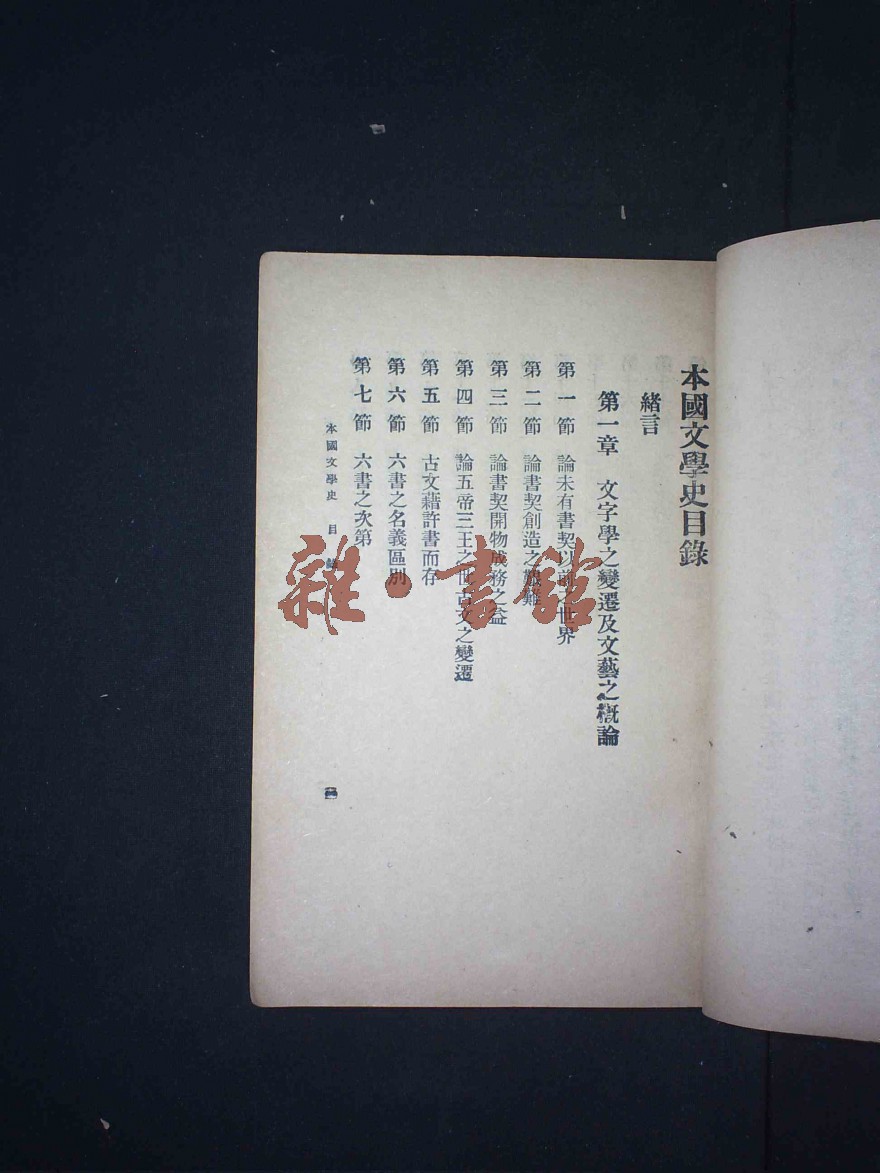 本國文學史目錄
緒言
第一章 文字學之變遷及文藝之槪論
第一節 論未有書契以前之世界
第二節 論書契創造之艱難
第三節 論書契開物成務之益
第四節 論五帝三王之世古文之變遷
第五節 古文藉許書而存
第六節 六書之名義區別
第七節 六書之次第
本國文學史 目錄
雜·書館